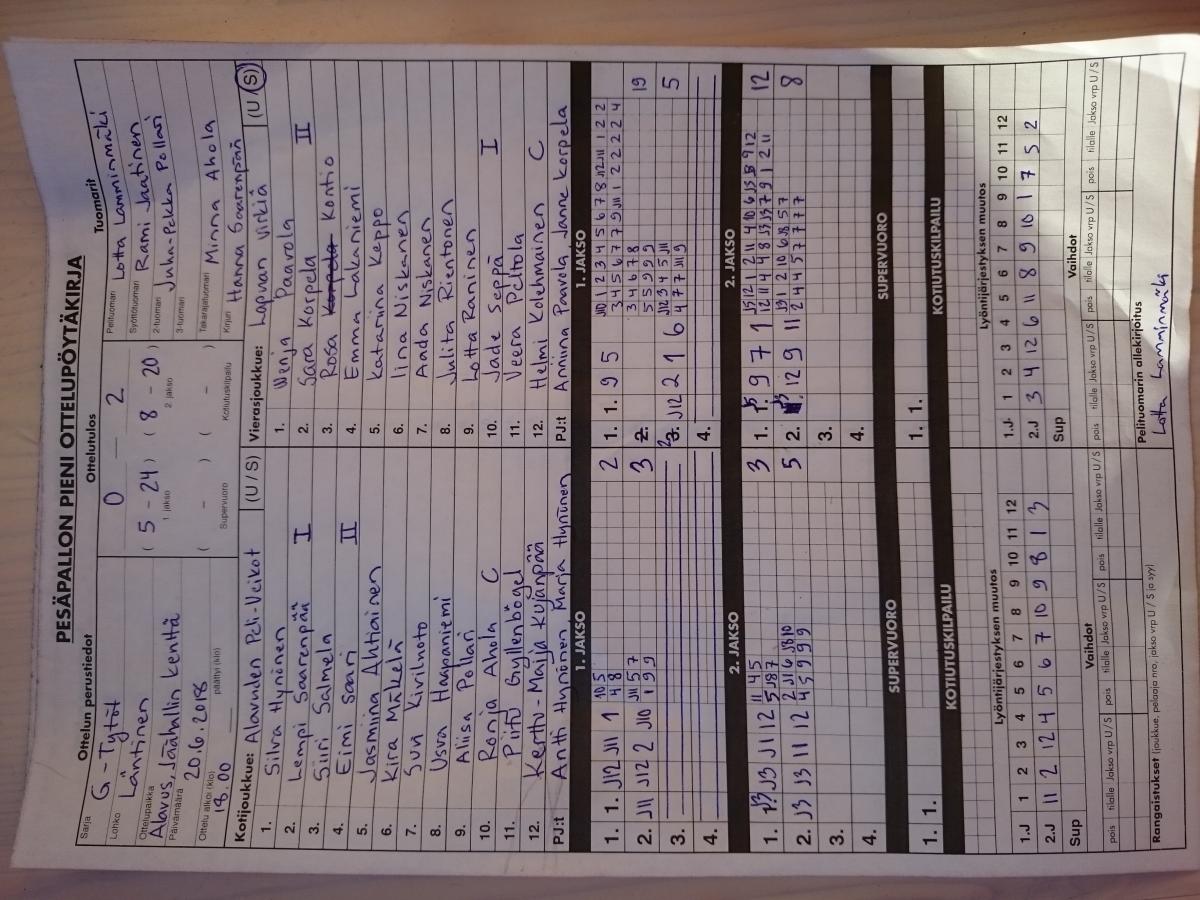 PESÄPALLON PIENI OTTELUPÖYTÄKIRJA
Ottelun perustiedot
Sarja G-Tytöt
Lohko Läntinen
Ottelupaikka
Alavus, Jäähallin kenttä
Päivämäärä 20.6.2018
Ottelu alkoi (klo) päättyi (klo)
18.00
Ottelutulos
0 — 2
( 5 - 24 ) ( 8 - 20 )
1. jakso 2. jakso
( - ) ( - )
Supervuoro Kotiutuskilpailu
Tuomarit
Pelituomari Lotta Lamminmäki
Syöttötuomari Rami Jaatinen
2-tuomari Juha-Pekka Pollari
3-tuomari
Takarajatuomari Minna Ahola
Kirjuri Hanna Saarenpää
Kotijoukkue: Alavuden Peli-Veikot (U / S)
1. Silva Hynönen
2. Lempi Saarenpää I
3. Siiri Salmela
4. Eimi Saari II
5. Jasmiina Ahtiainen
6. Kira Mäkelä
7. Suvi Kivilnoto
8. Usva Haapaniemi
9. Aliisa Pollari
10. Ronja Ahola C
11. Piitu Gyllenbögel
12. Kerttu-Maija Kujanpää
PJ:t Antti Hynönen, Marja Hynönen
Vierasjoukkue: Lapuan Virkiä (U / S)
1. Venja Paavola
2. Sara Korpela II
3. Rosa Korpela Kontio
4. Emma Lakaniemi
5. Katariina Keppo
6. Iina Niskanen
7. Aada Niskanen
8. Julita Rientonen
9. Lotta Raninen
10. Jade Seppä I
11. Veera Peltola
12. Helmi Kolehmainen C
PJ:t Anniina Paavola, Janne Korpela
1. JAKSO
1. 1. J12 J11 1 10 5 2
4 8
2. J11 J12 2 J10 J11 5 7 3
1 9 9
3.
4.
1. JAKSO
1. 1. 9 5 J10 1 2 3 4 5 6 7 8 J12 J11 1 2 2
3 4 5 6 7 7 9 J11 1 2 2 2 2 4
2. 3 4 6 7 8 19
5 5 9 9 9
3. J12 2 1 6 J12 3 4 5 J11 5
4 7 7 J11 9
4.
2. JAKSO
1. J3 J3 J1 12 11 4 5 3
5 J8 7
2. J3 J3 11 12 2 J1 6 J8 10 5
4 5 9 9 9
3.
4.
2. JAKSO
1. 9 7 1 12
2. 12 9 11 8
2 4 4 5 7 7 7 7
3.
4.
SUPERVUORO
1. 1.
SUPERVUORO
1. 1.
KOTIUTUSKILPAILU
KOTIUTUSKILPAILU
Lyöntijärjestyksen muutos
1.J 1 2 3 4 5 6 7 8 9 10 11 12
2.J 11 2 12 4 5 6 7 10 9 8 1 3
Sup
Lyöntijärjestyksen muutos
1.J 1 2 3 4 5 6 7 8 9 10 11 12
2.J 3 4 12 6 11 8 9 10 1 7 5 2
Sup
Vaihdot
pois tilalle Jakso vrp U / S pois tilalle Jakso vrp U / S pois tilalle Jakso vrp U / S
Vaihdot
pois tilalle Jakso vrp U / S pois tilalle Jakso vrp U / S pois tilalle Jakso vrp U / S
Rangaistukset (joukkue, pelaaja nro, jakso vrp U / S ja syy)
Pelituomarin allekirjoitus
Lotta Lamminmäki